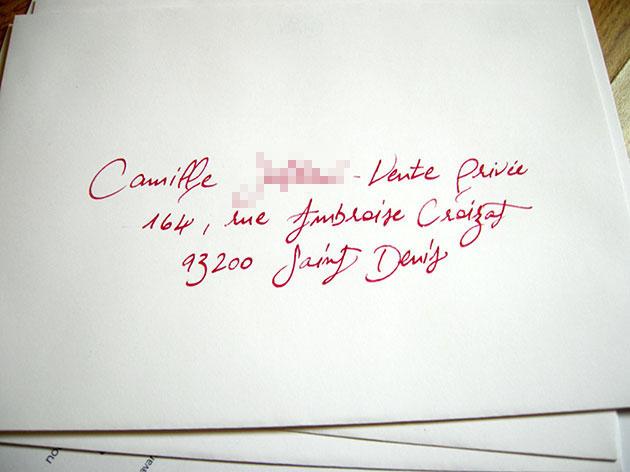 Camille - Vente Privée
164, rue Ambroise Croizat
93200 Saint Denis
no
avan